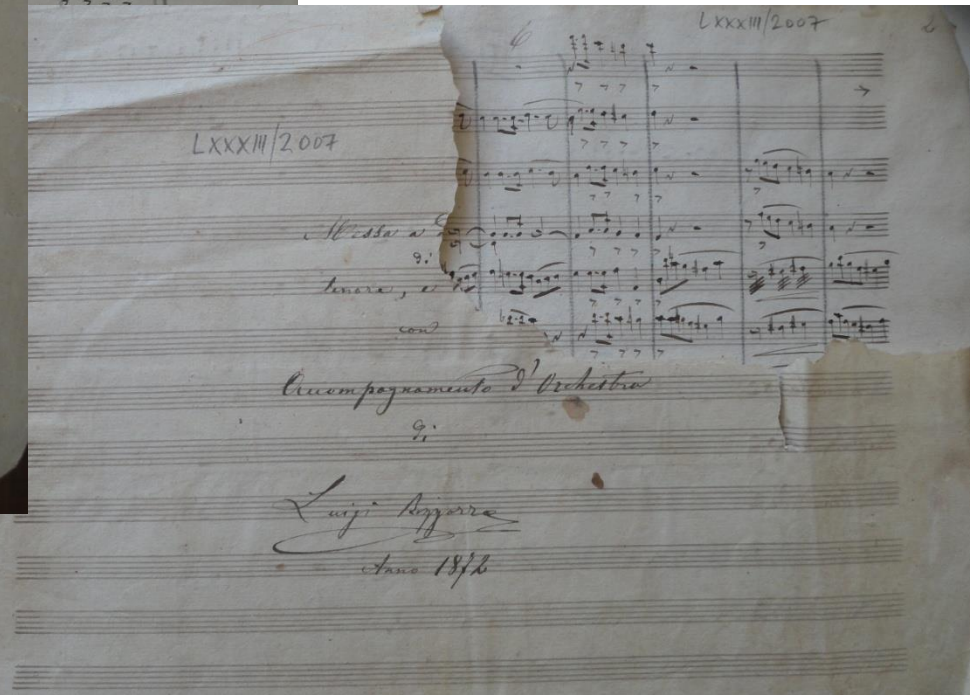 LXXXIII/2007
6
2
LXXXIII/2007
Messa a
di
tenore, e
con
Accompagnamento d'Orchestra
Di
Luigi
Anno 1872